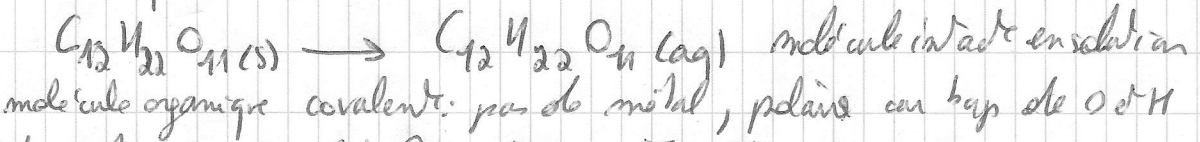 C₁₂H₂₂O₁₁(s) → C₁₂H₂₂O₁₁(aq) molécule intacte en solution
molécule organique covalente: pas de métal, polaire car bcp de O et H